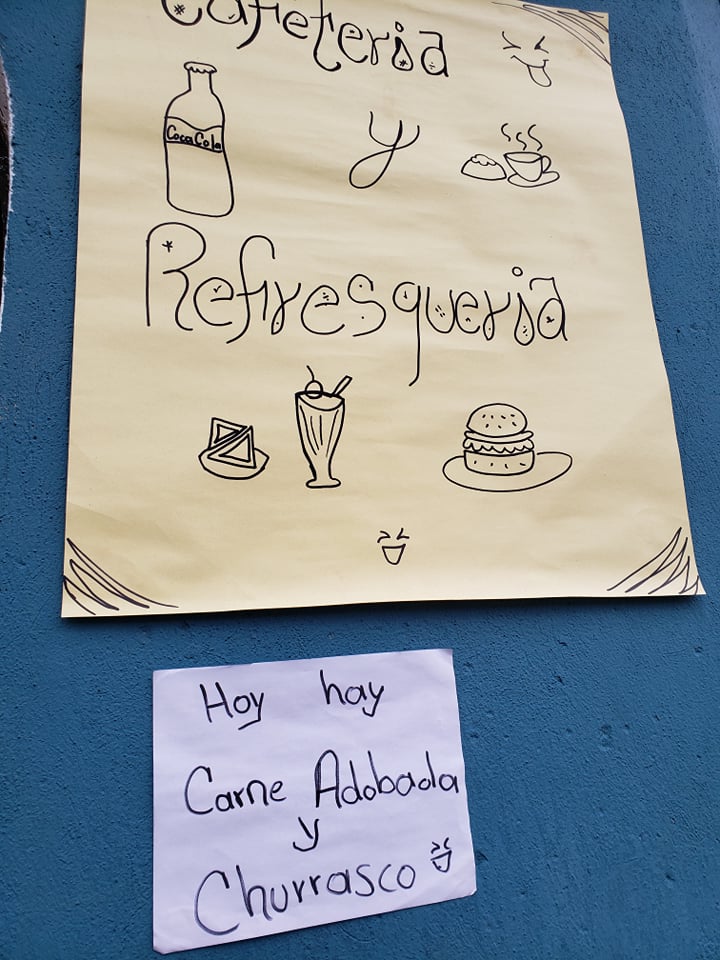 Cafeteria
CocaCola
y
Refresqueria
Hoy hay
Carne Adobada
y
Churrasco